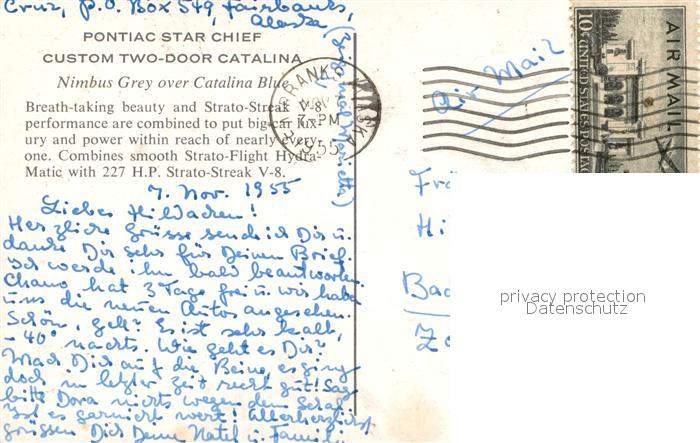 Cruz, P.O. Box 549, Fairbanks,
Alaska
PONTIAC STAR CHIEF
CUSTOM TWO-DOOR CATALINA
Nimbus Grey over Catalina Blue
Breath-taking beauty and Strato-Streak V-8
performance are combined to put big-car lux-
ury and power within reach of nearly every-
one. Combines smooth Strato-Flight Hydra-
Matic with 227 H.P. Strato-Streak V-8.
7. Nov. 1955
Liebes Hildachen!
Herzliche Grüsse sende ich Dir u.
danke Dir sehr für Deinen Brief.
Ich werde ihn bald beantworten.
Chano hat 3 Tage frei u. wir haben
uns die neuen Autos angesehen.
Schön, gelt? Es ist sehr kalt,
- 40° nachts. Wie geht es Dir?
Mach Dich auf die Beine, es ging
doch in letzter Zeit recht gut! Sag
bitte Dora nichts wegen dem
Ist es garnicht wert! Allerherzlichst
grüssen Dich Deine u. Familie
7-PM
1955
ALASKA
Air Mail
10¢
UNITED STATES POSTAGE
AIR MAIL
Frä
Hi
Bad
privacy protection
Datenschutz